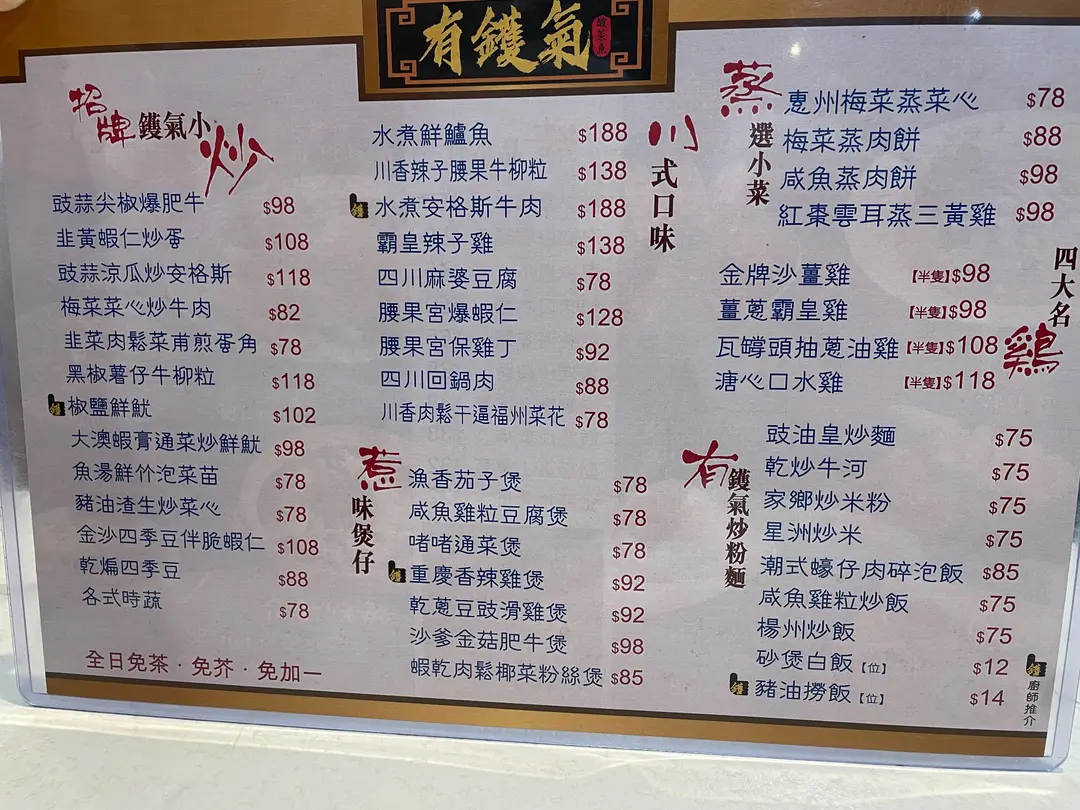 有鑊氣
酸菜魚
招牌鑊氣小炒
豉蒜尖椒爆肥牛 $98
韭黃蝦仁炒蛋 $108
豉蒜涼瓜炒安格斯 $118
梅菜菜心炒牛肉 $82
韭菜肉鬆菜甫煎蛋角 $78
黑椒薯仔牛柳粒 $118
鑊 椒鹽鮮魷 $102
大澳蝦膏通菜炒鮮魷 $98
魚湯鮮竹泡菜苗 $78
豬油渣生炒菜心 $78
金沙四季豆伴脆蝦仁 $108
乾煸四季豆 $88
各式時蔬 $78
全日免茶·免芥·免加一
川式口味
水煮鮮鱸魚 $188
川香辣子腰果牛柳粒 $138
鑊 水煮安格斯牛肉 $188
霸皇辣子雞 $138
四川麻婆豆腐 $78
腰果宮爆蝦仁 $128
腰果宮保雞丁 $92
四川回鍋肉 $88
川香肉鬆干逼福州菜花 $78
惹味煲仔
漁香茄子煲 $78
咸魚雞粒豆腐煲 $78
啫啫通菜煲 $78
鑊 重慶香辣雞煲 $92
乾蔥豆豉滑雞煲 $92
沙爹金菇肥牛煲 $98
蝦乾肉鬆椰菜粉絲煲 $85
蒸選小菜
惠州梅菜蒸菜心 $78
梅菜蒸肉餅 $88
咸魚蒸肉餅 $98
紅棗雲耳蒸三黃雞 $98
四大名鷄
金牌沙薑雞 【半隻】$98
薑蔥霸皇雞 【半隻】$98
瓦罉頭抽蔥油雞 【半隻】$108
溏心口水雞 【半隻】$118
有鑊氣炒粉麵
豉油皇炒麵 $75
乾炒牛河 $75
家鄉炒米粉 $75
星洲炒米 $75
潮式蠔仔肉碎泡飯 $85
咸魚雞粒炒飯 $75
楊州炒飯 $75
砂煲白飯【位】 $12
鑊 豬油撈飯【位】 $14
鑊 廚師推介